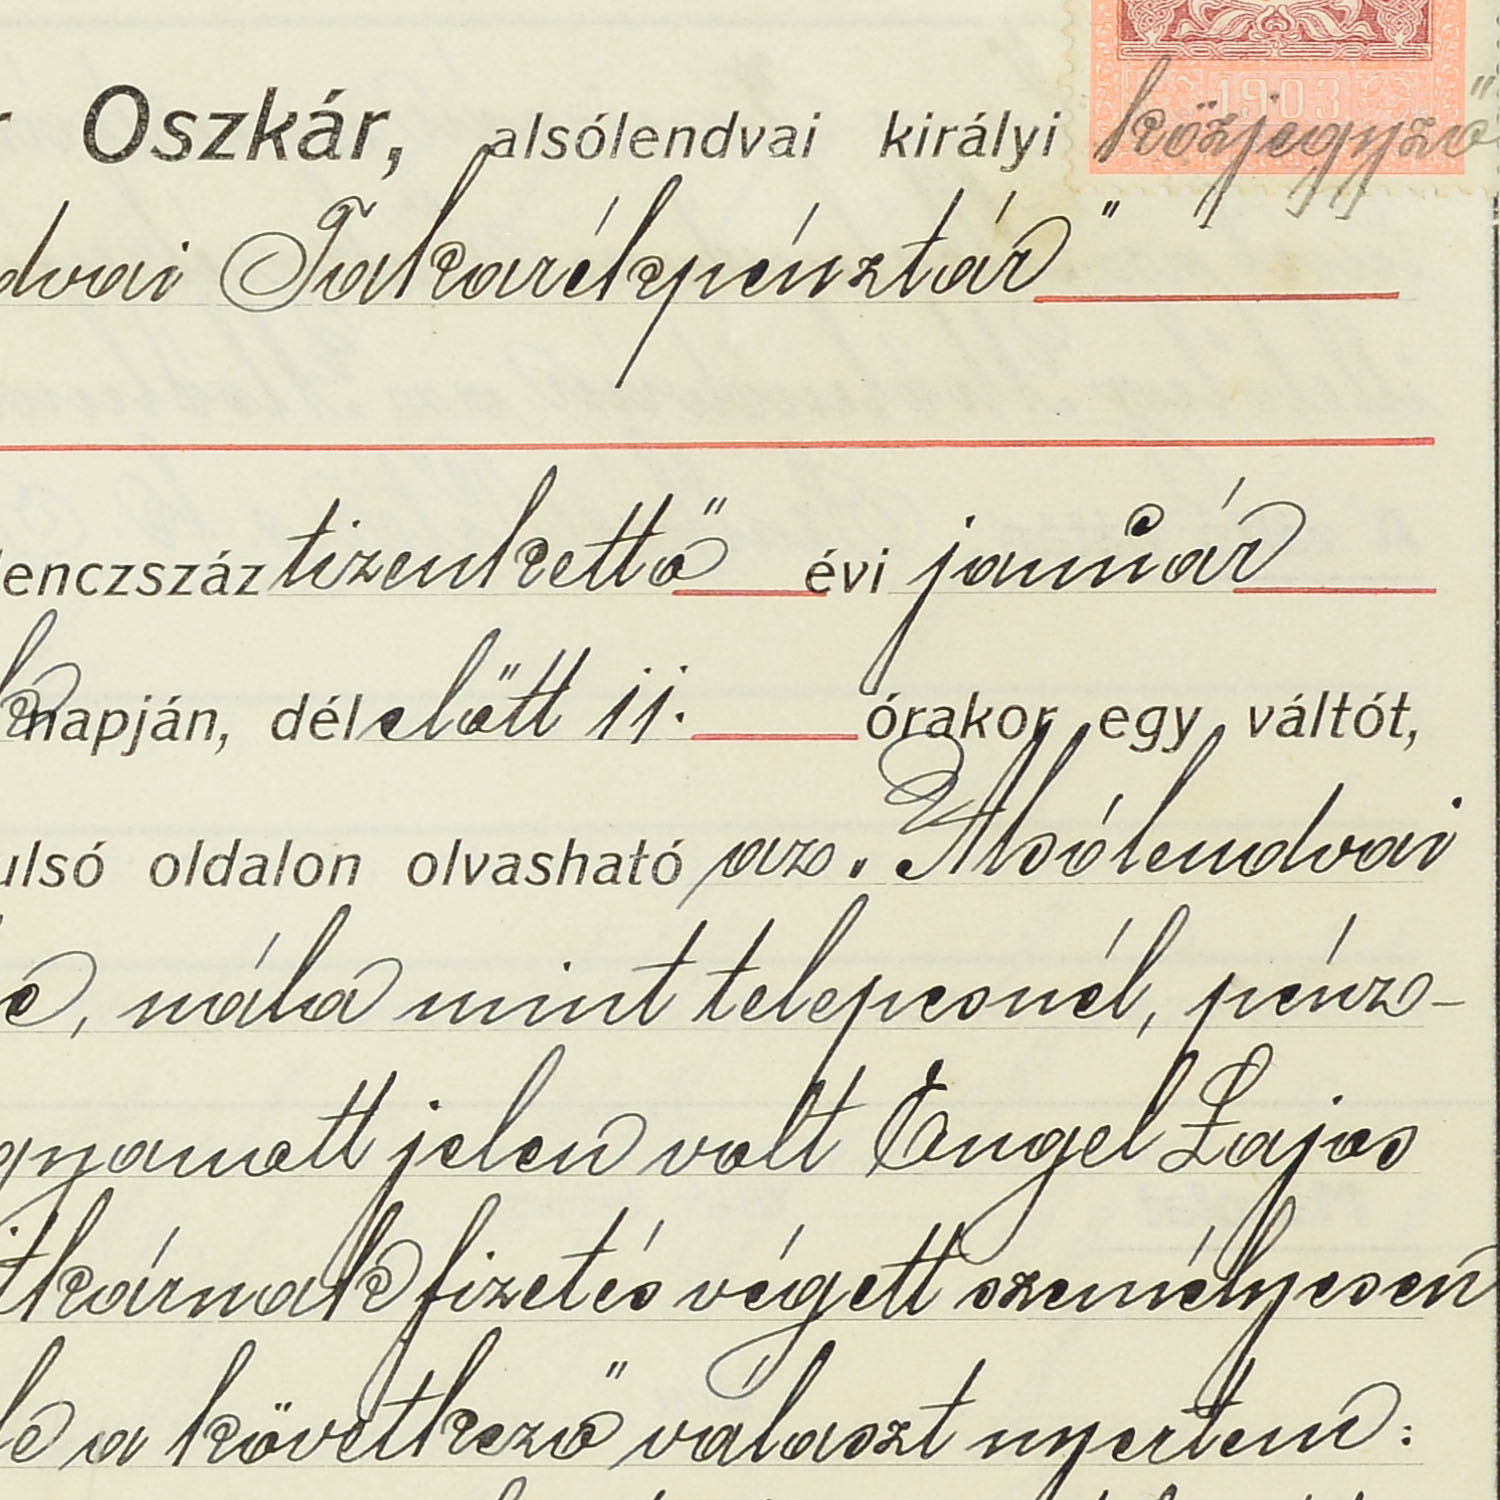 1903
r Oszkár, alsólendvai királyi közjegyző
dvai Takarékpénztár"
lenczszáz tizenkettő évi január
k napján, délelőtt 11. órakor egy váltót,
ulsó oldalon olvasható az „Alsólendvai
e, nála mint telepesnél, pénz-
gyanott jelen volt Engel Lajos
tkárnak fizetés végett személyesen
le a következő választ nyertem: